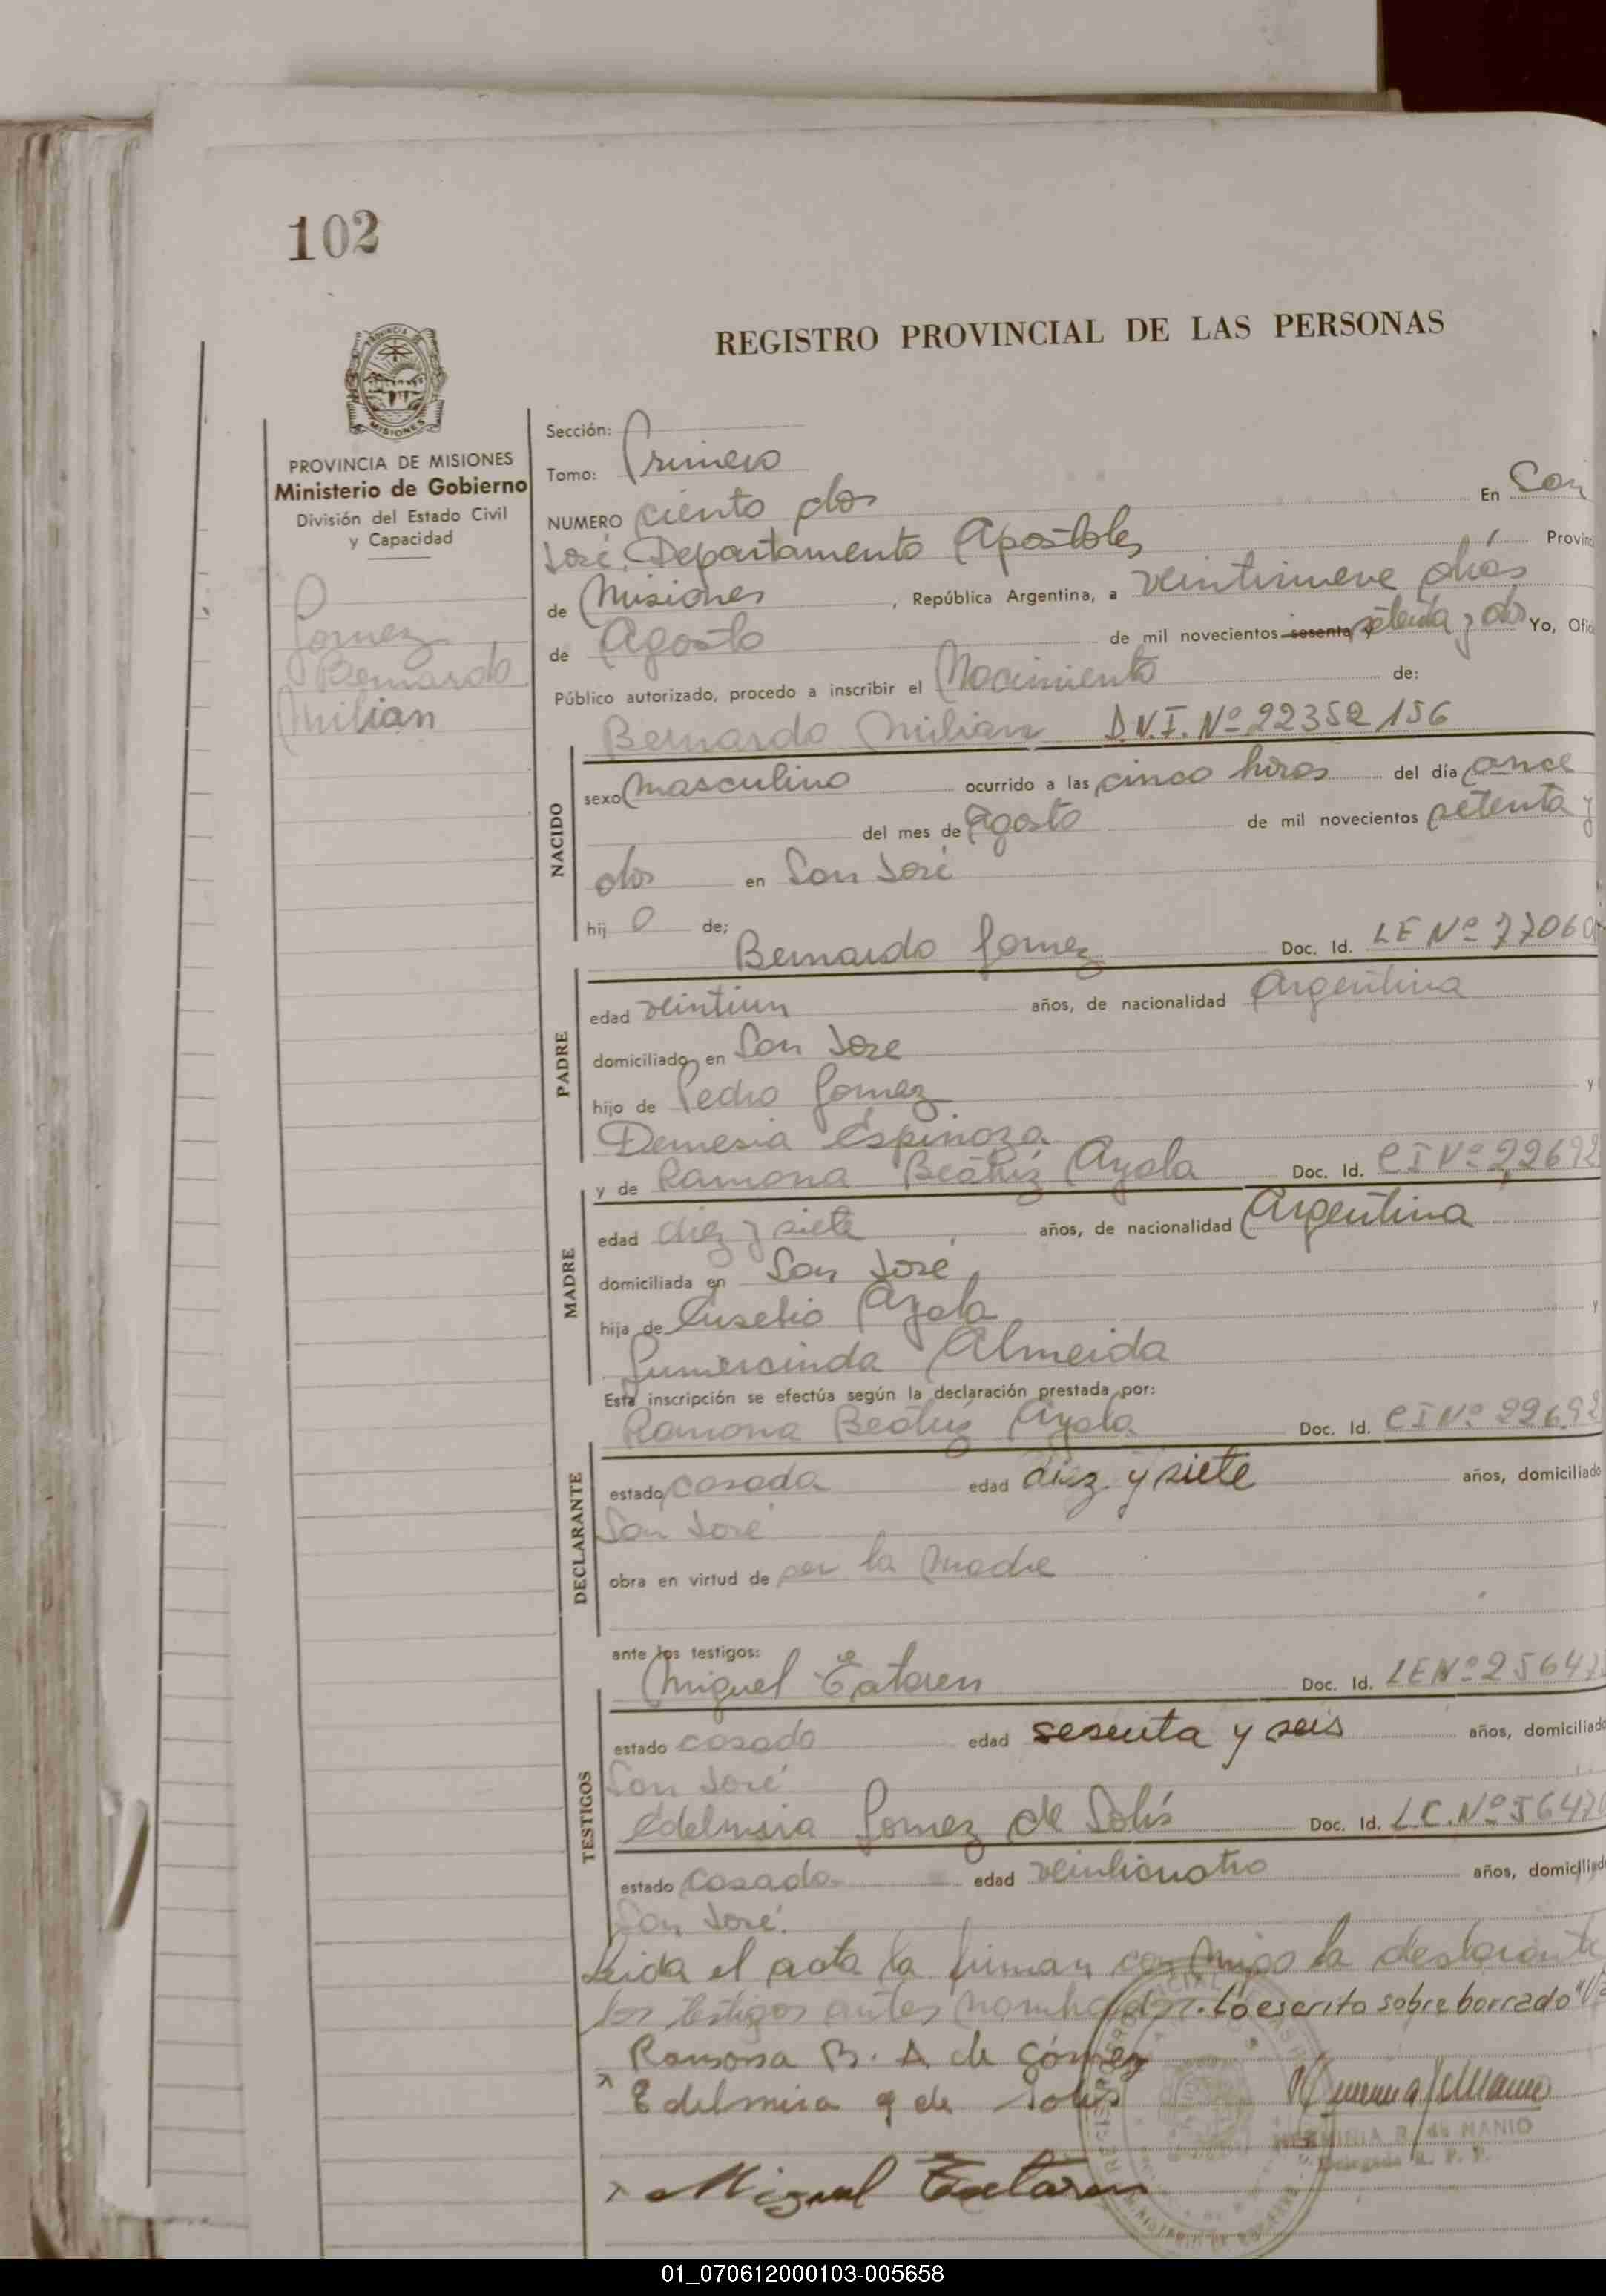 102
REGISTRO PROVINCIAL DE LAS PERSONAS
PROVINCIA DE MISIONES
Ministerio de Gobierno
División del Estado Civil
y Capacidad
Gomez
Bernardo
Milian
Sección:
Tomo: Primero
NUMERO ciento dos En San
José, Departamento Apóstoles, Provinc
de Misiones, República Argentina, a veintinueve días
de Agosto de mil novecientos sesenta y setenta y dos Yo, Ofic
Público autorizado, procedo a inscribir el Nacimiento de:
Bernardo Milian D.N.I. Nº 22352156
NACIDO
sexo masculino ocurrido a las cinco horas del día once
del mes de Agosto de mil novecientos setenta y
dos en San José
hij o de;
Bernardo Gomez Doc. Id. LE Nº 77060
PADRE
edad veintiun años, de nacionalidad Argentina
domiciliado en San José
hijo de Pedro Gomez y
Demesia Espinoza
y de Ramona Beatriz Ayala Doc. Id. CI Nº 22692
MADRE
edad diez y siete años, de nacionalidad Argentina
domiciliada en San José
hija de Eusebio Ayala y
Gumercinda Almeida
Esta inscripción se efectúa según la declaración prestada por:
Ramona Beatriz Ayala Doc. Id. CI Nº 22692
DECLARANTE
estado casada edad diez y siete años, domiciliado
San José
obra en virtud de ser la Madre
ante los testigos:
Miguel Eataren Doc. Id. LE Nº 25647
TESTIGOS
estado casado edad sesenta y seis años, domiciliado
San José
Edelmira Gomez de Solís Doc. Id. L.C. Nº 5647
estado casada edad veinticuatro años, domiciliado
San José.
Leida el acta la firman conmigo la declarante
los testigos antes nombrados. Lo escrito sobre borrado
Ramona B. A de Gómez
Edelmira g de Solis
HERMINIA R. de NANIO
Delegada R. P. P.
Miguel Eataren
01_070612000103-005658